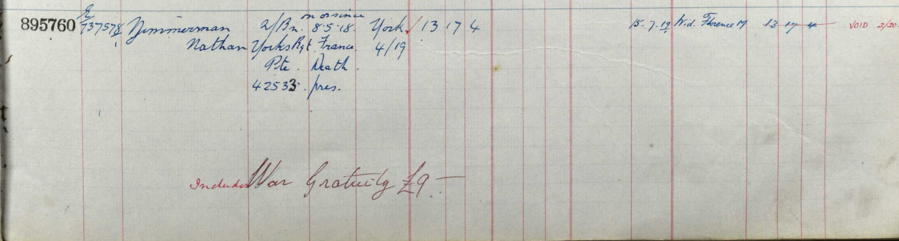 895760 E/737578/1 Zimmerman 2/Bn. on or since 8.5.18 York / 13 17 4 15.7.19 Wid. Florence M 13 17 4 VOID 2/20
Nathan Yorks Rgt. France 4/19
Pte. Death
42533 pres.
Includes War Gratuity £9.—